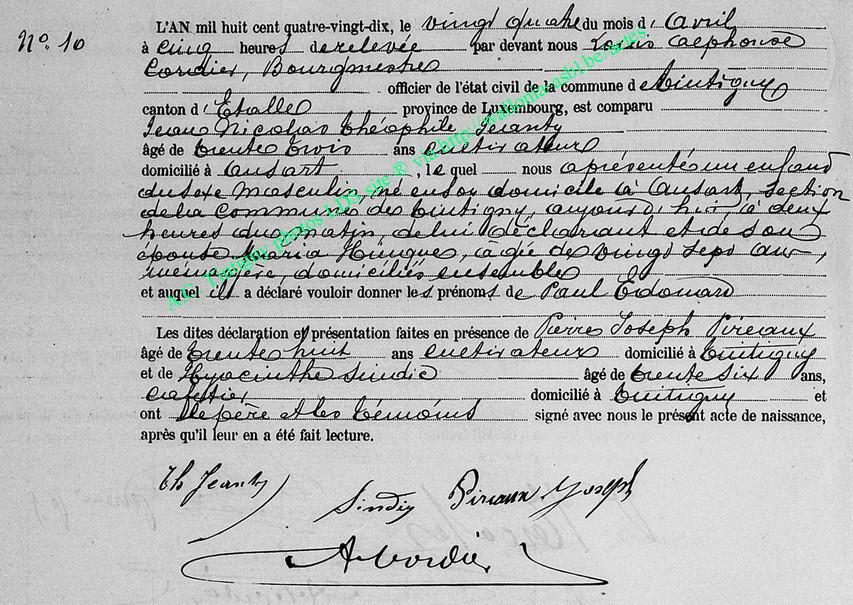 N° 10
L'AN mil huit cent quatre-vingt-dix, le vingt quatre du mois d' Avril
à cinq heures de relevée par devant nous Louis Alphonse
Cordier, Bourgmestre
officier de l'état civil de la commune de Tintigny
canton d' Etalle province de Luxembourg, est comparu
Jean Nicolas Théophile Jeanty
âgé de trente trois ans cultivateur
domicilié à Ansart, le quel nous a présenté un enfant
du sexe masculin, né en son domicile à Ansart, section
de la commune de Tintigny, aujourd'hui à deux
heures du matin, de lui déclarant et de son
épouse Maria, âgée de vingt sept ans,
ménagère, domiciliés ensemble
et auquel il a déclaré vouloir donner les prénoms de Paul Edouard
Les dites déclaration et présentation faites en présence de Pierre Joseph Pireaux
âgé de trente huit ans cultivateur domicilié à Tintigny
et de Hyacinthe Sindic âgé de trente six ans,
cafetier domicilié à Tintigny et
ont le père et les témoins signé avec nous le présent acte de naissance,
après qu'il leur en a été fait lecture.
Th Jeanty
Sindic Pireaux Joseph
A Cordier
A.C. Tintigny photos LDS site R via http://wallonia-asbl.be/actes